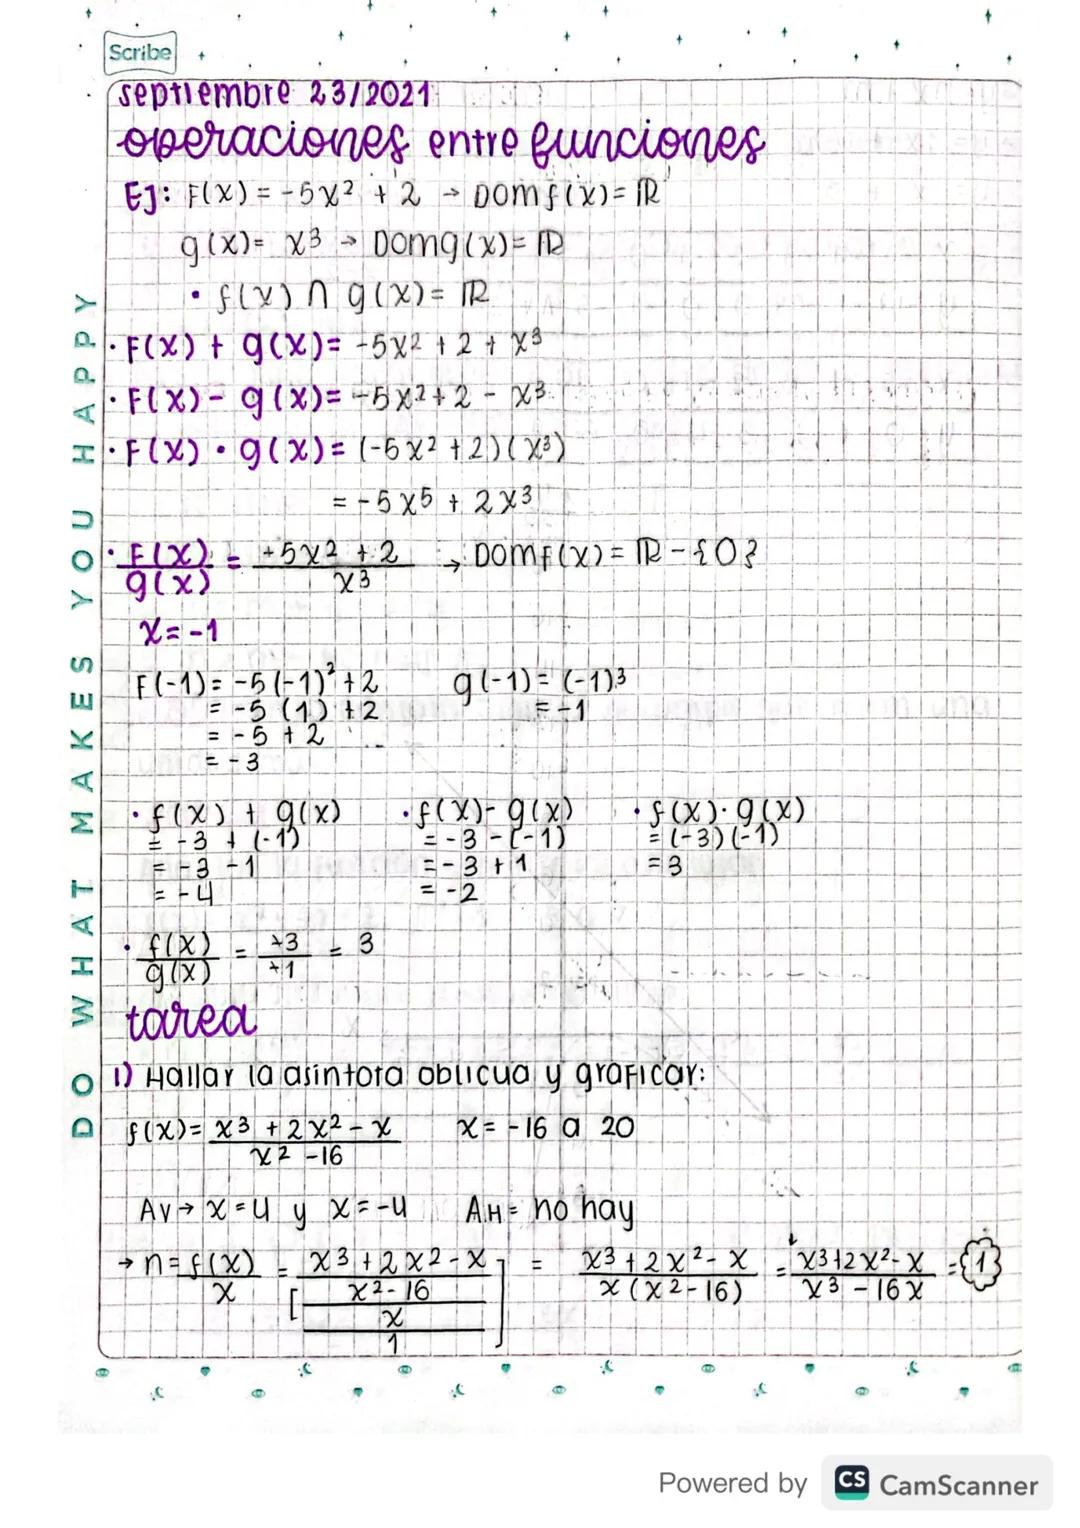 Scribe
septiembre 23/2021
operaciones entre funciones
Ej: F(x) = -5x² + 2 → Domf(x)= ℝ
g(x)= x³ → Domg(x)= ℝ
• f(x) ∩ g(x)= ℝ
• F(x) + g(x)= -5x² + 2 + x³
• F(x) - g(x)= -5x²+2 - x³
• F(x) • g(x)= (-5x² +2)(x³)
= -5x⁵ + 2x³
• F(x)/g(x) = +5x² + 2/x³ → Domf(x)= ℝ - {0}
x= -1
F(-1)= -5(-1)²+2 g(-1)= (-1)³
= -5(1)+2 = -1
= -5 + 2
= -3
• f(x) + g(x) • f(x)- g(x) • f(x)· g(x)
= -3 + (-1) = -3 -(-1) = (-3)(-1)
= -3 -1 = -3 +1 = 3
= -4 = -2
• f(x)/g(x) = +3/+1 = 3
tarea
1) Hallar la asintota oblicua y graficar:
f(x)= x³ + 2x² - x/x² -16 x= -16 a 20
AV→ x=4 y x=-4 A.H= no hay
→ n= f(x)/x = [x³+2x²-x/x²-16/x/1] = x³+2x²-x/x(x²-16) = x³+2x²-x/x³-16x = {1}
DO WHAT MAKES YOU HAPPY
Powered by CS CamScanner